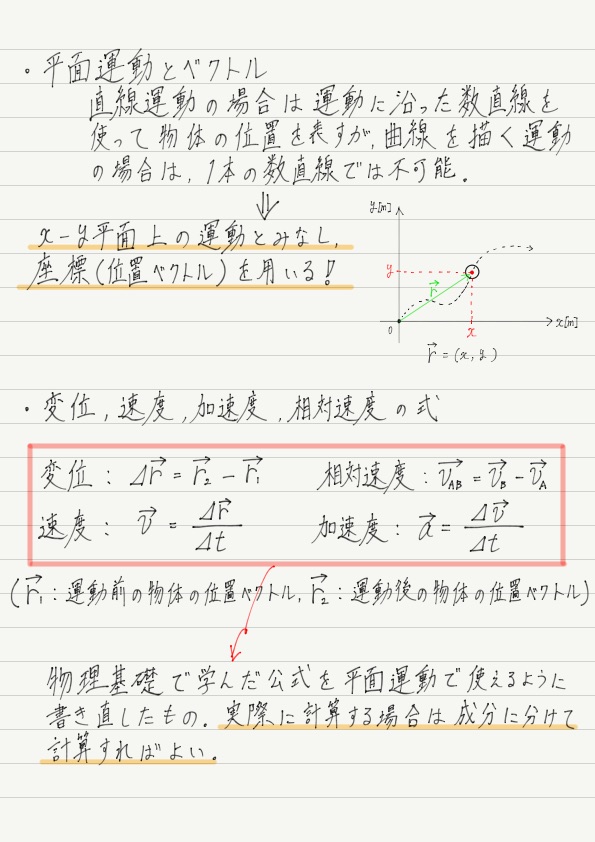 ・平面運動とベクトル
直線運動の場合は運動に沿った数直線を
使って物体の位置を表すが,曲線を描く運動
の場合は,1本の数直線では不可能.
⇓
x-y平面上の運動とみなし,
座標(位置ベクトル)を用いる!
y[m]
y
r⃗
0
x
x[m]
r⃗=(x,y)
・変位,速度,加速度,相対速度の式
変位:Δr⃗=r⃗₂-r⃗₁ 相対速度:v⃗AB=v⃗B-v⃗A
速度:v⃗=Δr⃗/Δt 加速度:a⃗=Δv⃗/Δt
(r⃗₁:運動前の物体の位置ベクトル,r⃗₂:運動後の物体の位置ベクトル)
物理基礎で学んだ公式を平面運動で使えるように
書き直したもの.実際に計算する場合は成分に分けて
計算すればよい.